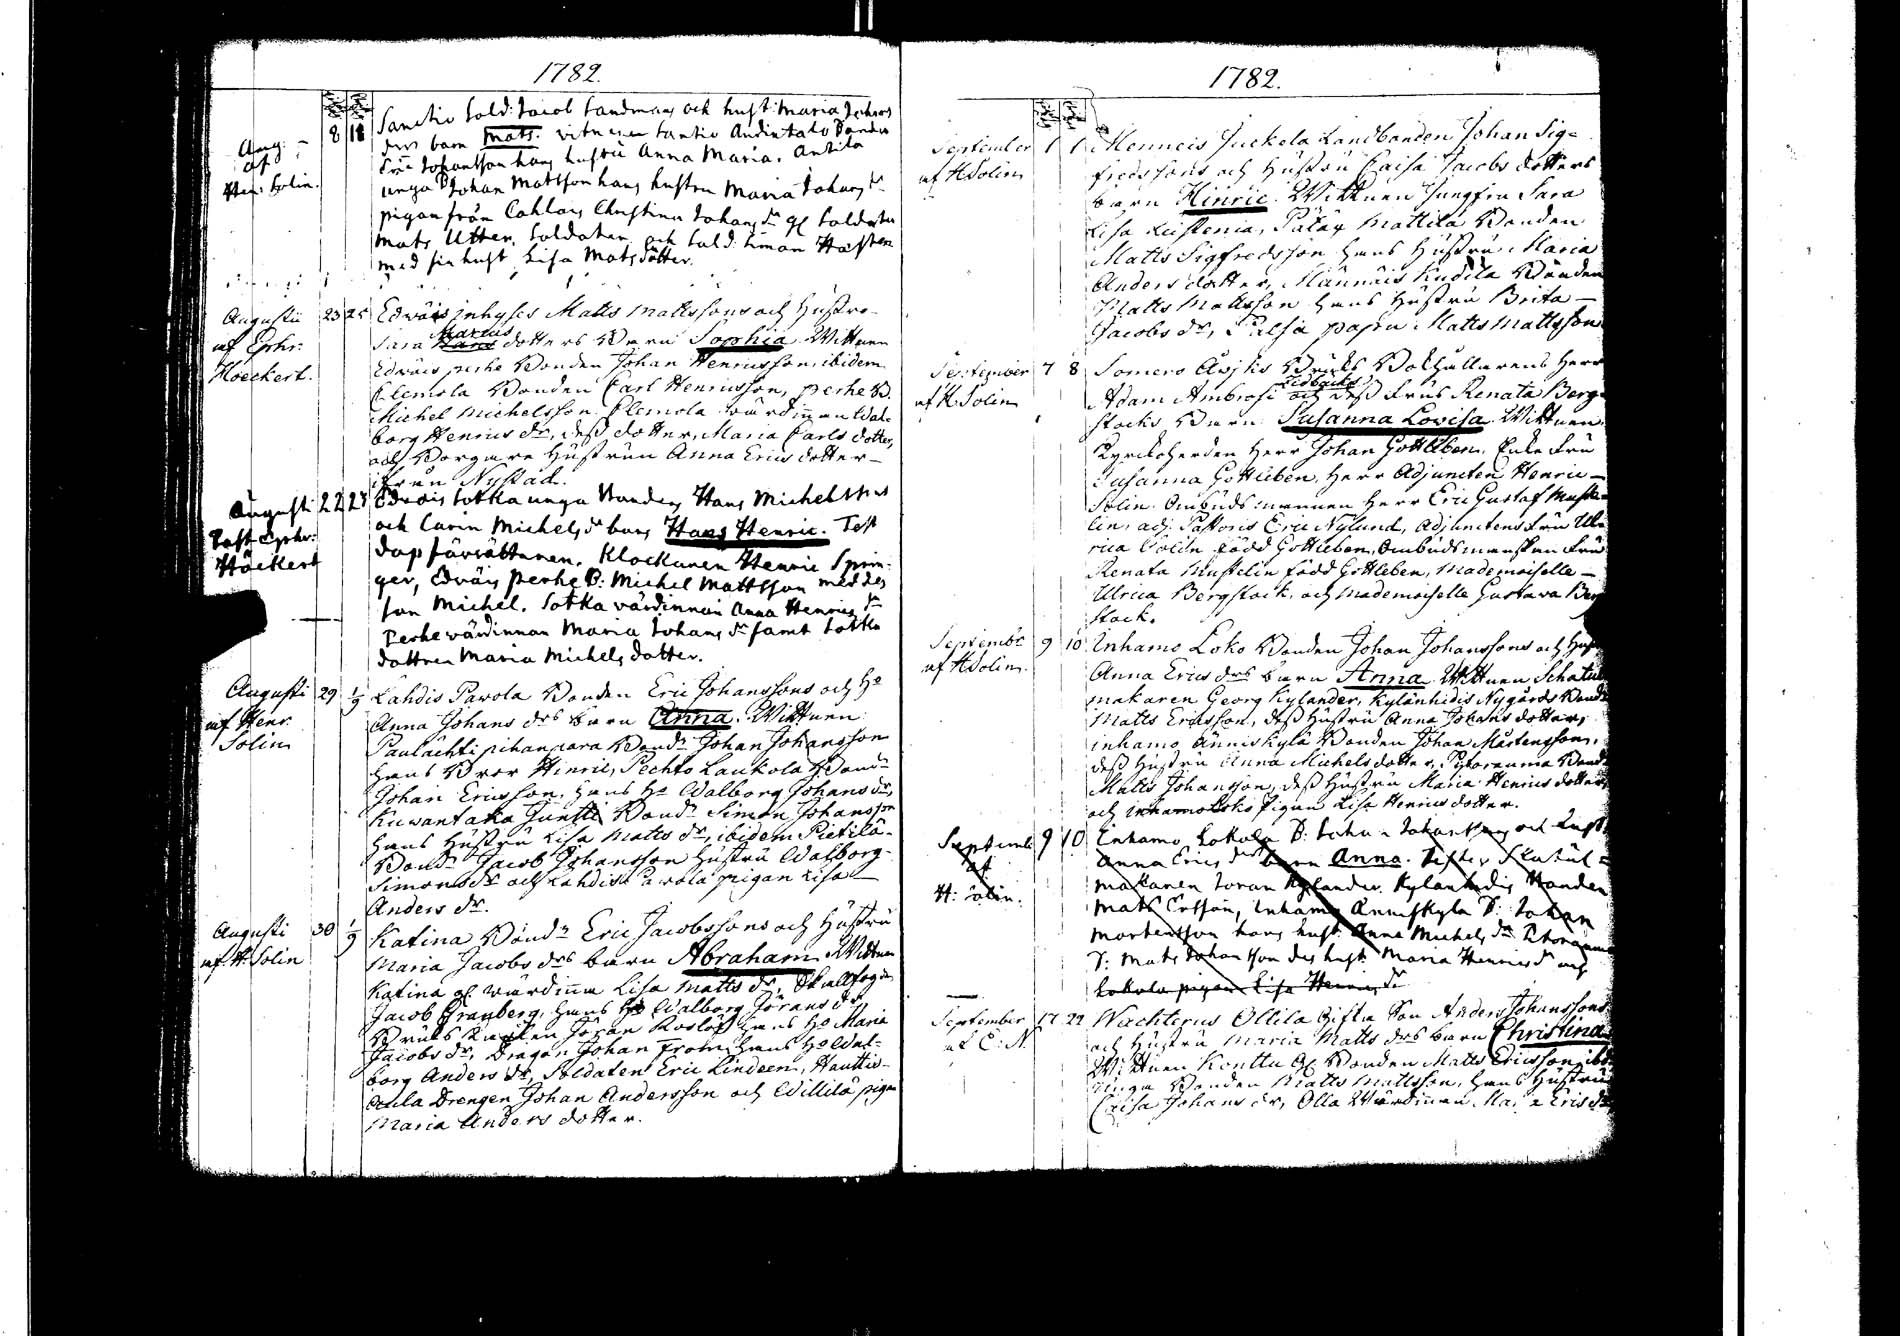 1782.
Aug:
af
Hen: Solin.
8 18
Sanctio Sold: Jacob Sandman och hust: Maria
drs barn Mats. vitnen
Eric Johansson hans hustru Anna Maria. Antila
unga B Johan Mattsson hans hustru Maria Johans dr
pigan från Cahlais Christina Johans dr gl Soldaten
Mats Utter. Soldaten och Sold: Simon
med sin hust Lisa Mats dotter.
Augustii
af Ephr:
Hoeckert.
23 25
Edwäis inhyses Matts Mattssons och Hustru
Sara Marcus dotters Barn Sophia. Wittnen
Edwäis perhe Bonden Johan Henricsson, ibidem
Clemola Bonden Carl Henricsson, perhe B.
Michel Michelsson Clemola wärdinnan Wal-
borg Henrics dr, dess dotter, Maria Carls dotter,
och Borgare Hustrun Anna Erics dotter
ifrån Nystad.
Augusti
Past: Ephr:
Höckert
22 23
Edväis Sotka unga Bondens Hans Michelssons
och Carin Michels dr barn Hans Henric. Test
dopförrättaren. Klockaren Henric Sprin-
ger, Edväis perhe B: Michel Mattsson med des
son Michel. Sotka värdinnan Anna Henrics dr
Perhe värdinnan Maria Johans dr samt Sotka
dottren Maria Michels dotter.
Augusti
af Henr:
Solin
29 1/9
Lahdis Pavola Bonden Eric Johanssons och Ho
Anna Johans drs barn Anna. Wittnen
Paulächti pihanpara Bondn Johan Johansson
hans Bror Hinric, Pechto Laukola Bondn
Johan Ericsson, hans Ho Walborg Johans dr,
Kuwantaka Juntti Bondn Simon Johansson
hans Hustru Lisa Matts dr, ibidem Pietilä
Bondn Jacob Johansson hustru Walborg
Simons dr och Lahdis Pavola pigan Lisa
Anders dr.
Augusti
af H. Solin
30 1/9
Katina Bondn Eric Jacobssons och Hustru
Maria Jacobs drs barn Abraham. Wittnen
Katina gl wärdinna Lisa Matts dr, Skallfogden
Jacob Granberg, hans Ho Walborg Jörans dr,
Bruks Jöran hans Ho Maria
Jacobs dr, Dragon Johan From hans Ho Wal-
borg Anders dr, Soldaten Eric Lindeen, Hauttis-
Drengen Johan Andersson och Willilä pigan
Maria Anders dotter.
1782.
September
af H Solin
1 1
Mennois Juckela Landbonden Johan Sig-
fredssons och Hustru Caisa Jacobs dotters
barn Hinric. Wittnen Jungfru Sara
Lisa Mattila Bonden
Matts Sigfredsson hans Hustru Maria
Anders dotter, Männäis Kudila Bonden
Matts Mattsson hans Hustru Brita
Jacobs dr, Matts Mattsson
September
af H Solin
7 8
Somero Åvjks Bruks Bokhållarens Herr
Adam Ambrosi och Dess Frus Renata Berg-
stocks Barn Susanna Lovisa. Wittnen
Kyrckoherden Herr Johan Gottleben, Enke Fru
Susanna Gottleben, Herr Adjuncten Henric
Solin. Ombudsmannen Herr Eric Gustaf Muste-
lin, adj: Pastoris Eric Nylund, Adjunctens Fru Ul-
rica Solin född Gottleben, Ombudsmanskan Fru
Renata Mustelin född Gottleben, Mademoiselle
Ulrica Bergstock, och Mademoiselle Gustava Berg
stock.
Septembr
af H Solin.
9 10
Inhamo Loko Bonden Johan Johanssons och Hust
Anna Erics drs barn Anna. Wittnen Schatul
makaren Georg Kylander, Kylänhidis Nygårds Bond
Matts Ericsson, dess Hustru Anna Johans dotter,
inhamo Änniskylä Bonden Johan Mårtensson,
dess Hustru Anna Michelsdotter, Pytoranma Bond
Matts Johansson, dess Hustru Maria Henrics dotter
och inhamo Loko Pigan Lisa Henrics dotter.
Septemb
af
H: Solin.
9 10
Inhamo Lokola B: Johan Johanssons och Hust
Anna Erics drs barn Anna. Test Skatul-
makaren Joran Kylander. Kylänhidis Bonden
Mats Ersson, Inhamo Änniskylä B: Johan
Mortensson hans hust: Anna Michels dr
B: Mats Johansson des hust: Maria Henrics dr och
Lokola pigan Lisa Henrics dr
September
af E: N.
17 22
Wachterus Ollila Gifta Son Anders Johanssons
och Hustru Maria Matts drs barn Christina
Wittnen Konttu gl Bonden Matts Ericsson, ibid
unga Bonden Matts Mattsson, hans Hustru
Caisa Johans dr, Olla Wärdinnan Maria Erics dr